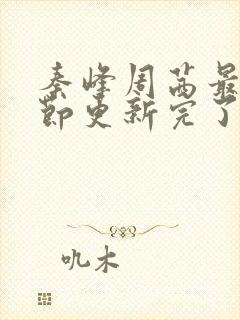 秦峰周茜最
节更新完了
叽木